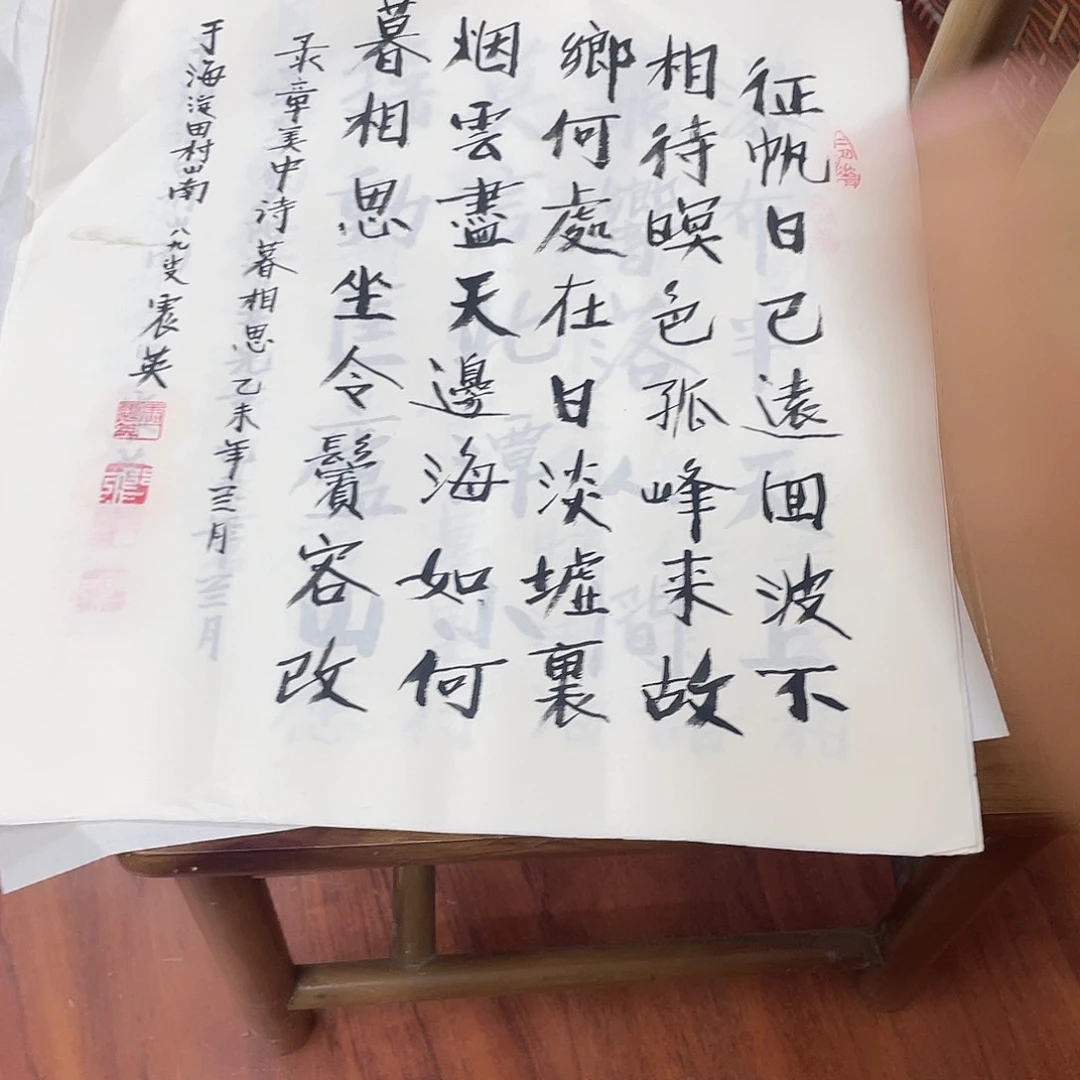 征帆日已遠囬波不
相待暝色孤峰来故
鄉何處在日淡墟裏
烟雲盡天邊海如何
暮相思坐令鬢容改
录章美中诗暮相思乙未年三月
于海淀田村山南八九叟震英